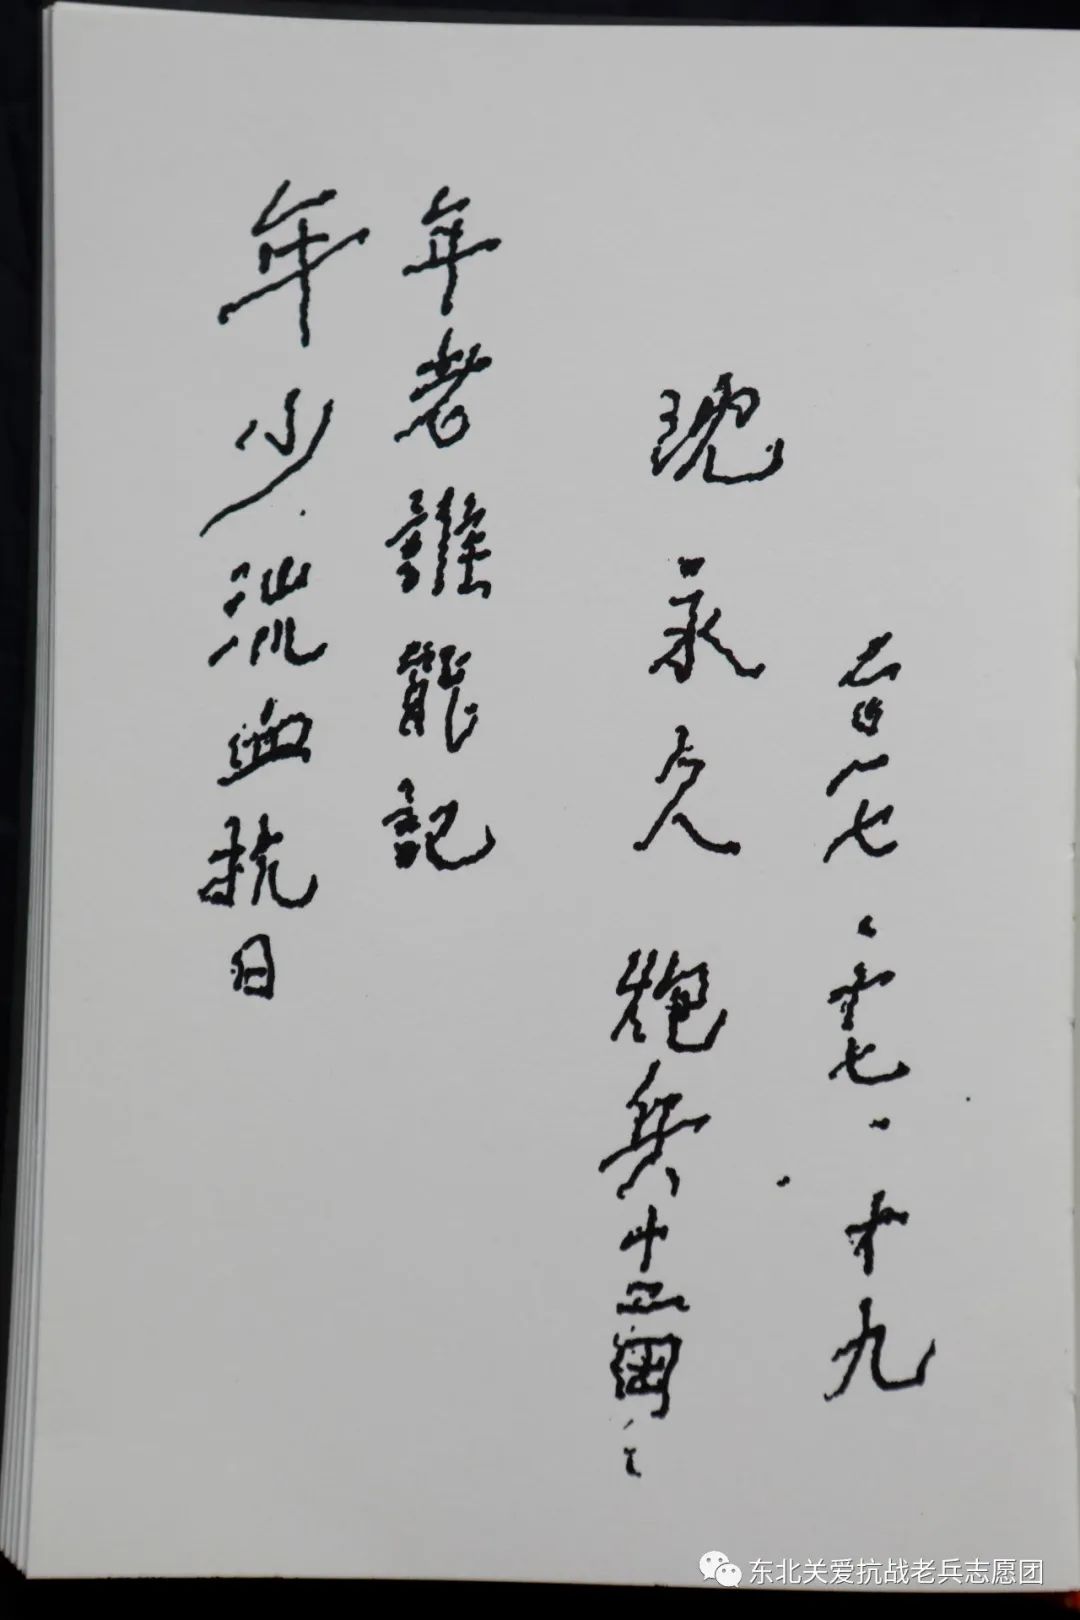 年少流血抗日
年老誰能記
沈永久 炮兵十五團
一七、零七、十九
东北关爱抗战老兵志愿团